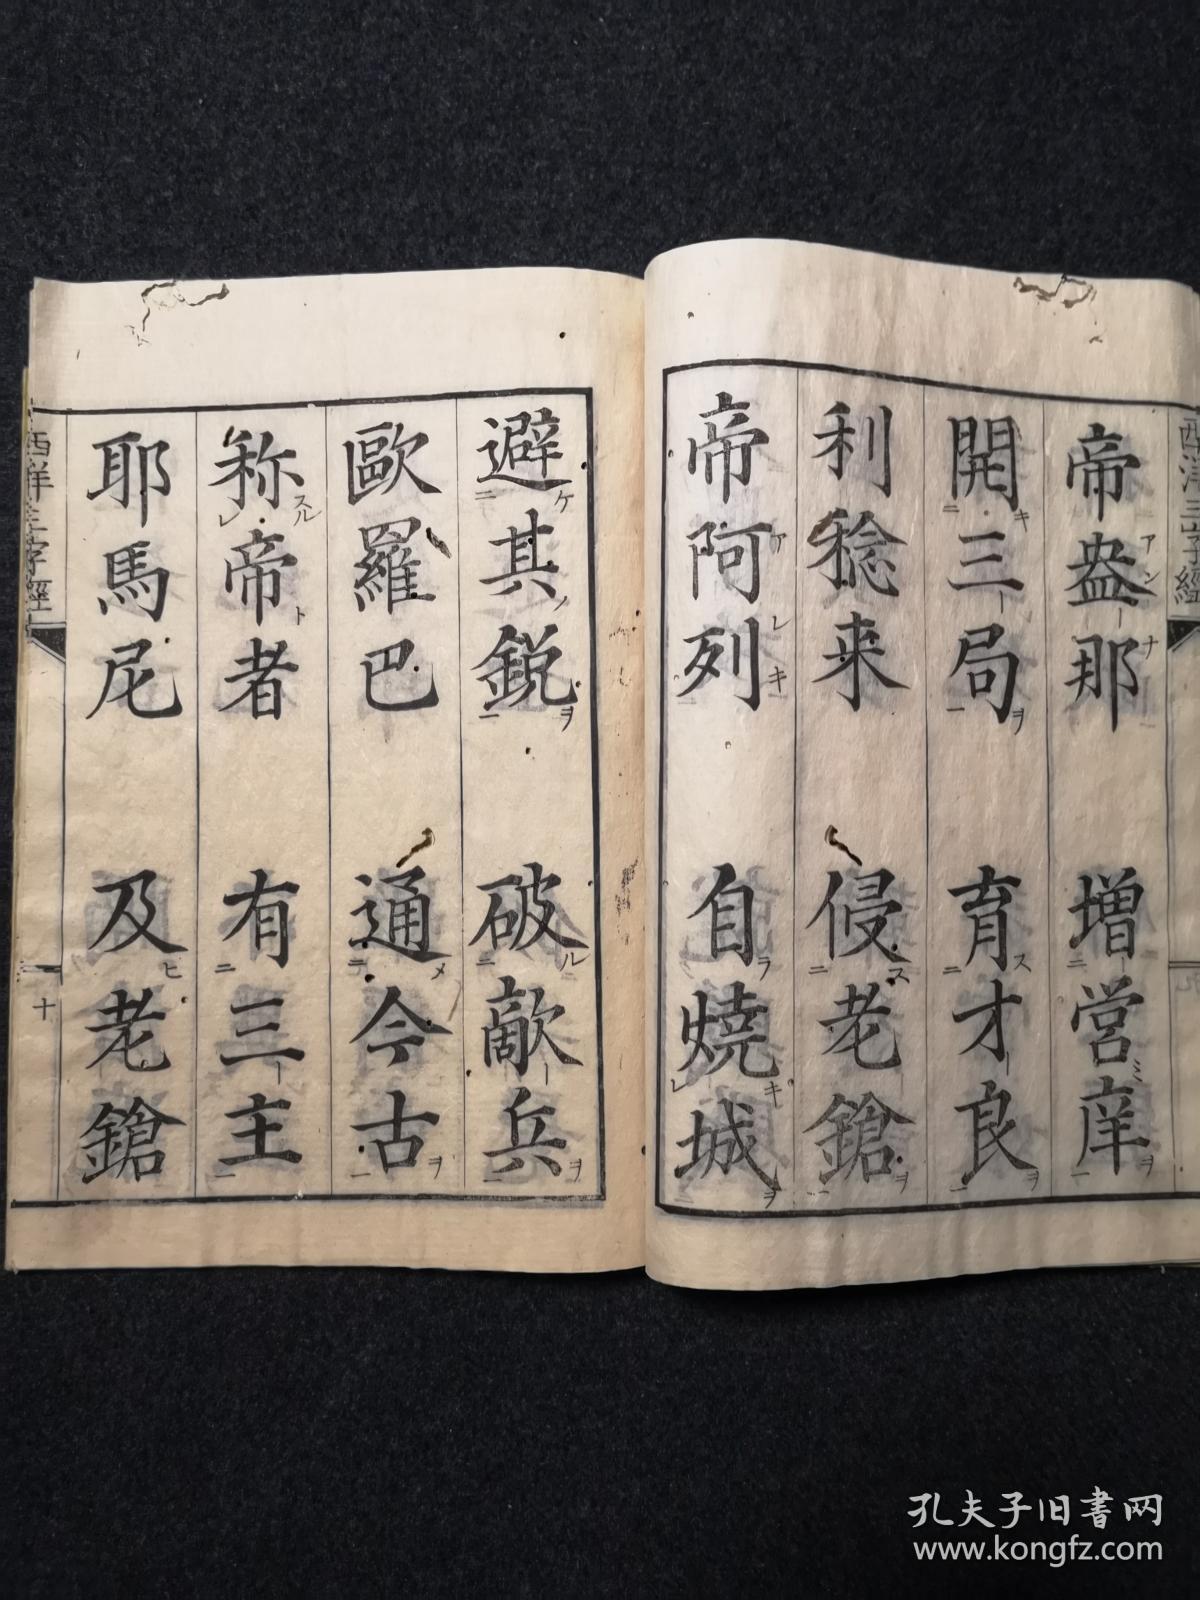 西洋三字經
帝盎那 増営庠
開三局 育才良
利稔来 侵老鎗
帝阿列 自燒城
避其鋭 破敵兵
歐羅巴 通今古
称帝者 有三主
耶馬尼 及老鎗
西洋三字經
十
孔夫子旧书网
www.kongfz.com